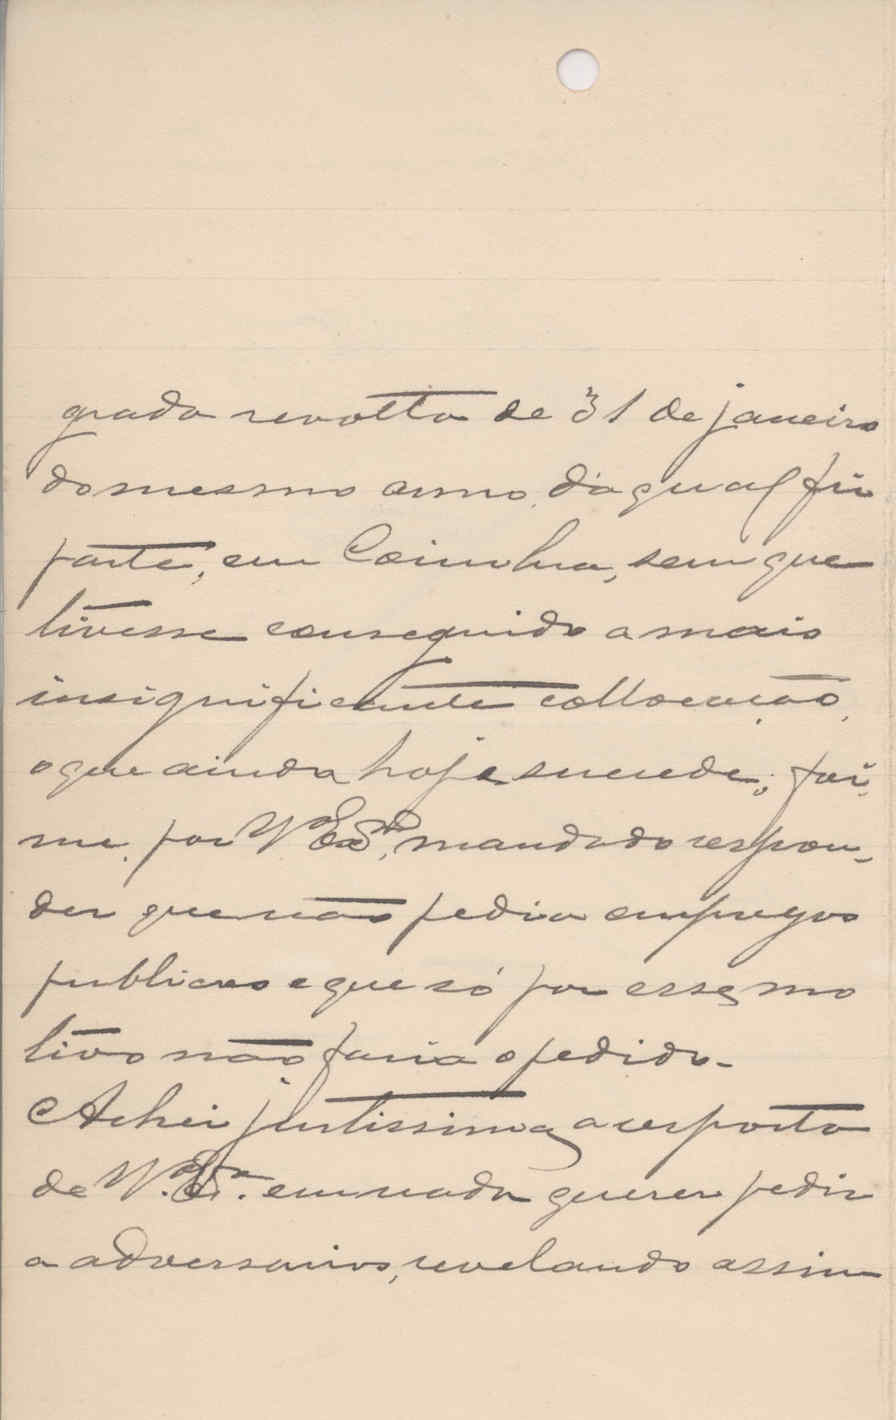 grada revolta de 31 de janeiro
do mesmo anno, da qual fiz
parte, em Coimbra, sem que
tivesse conseguido a mais
insignificante collocação,
o que ainda hoje succede; foi-
me, por V. Exª, mandado respon-
der que não pedia empregos
publicos e que só por esse mo
tivo não faria o pedido.
Achei justissima a resposta
de V. Exª. em nada querer pedir
a adversarios, revelando assim